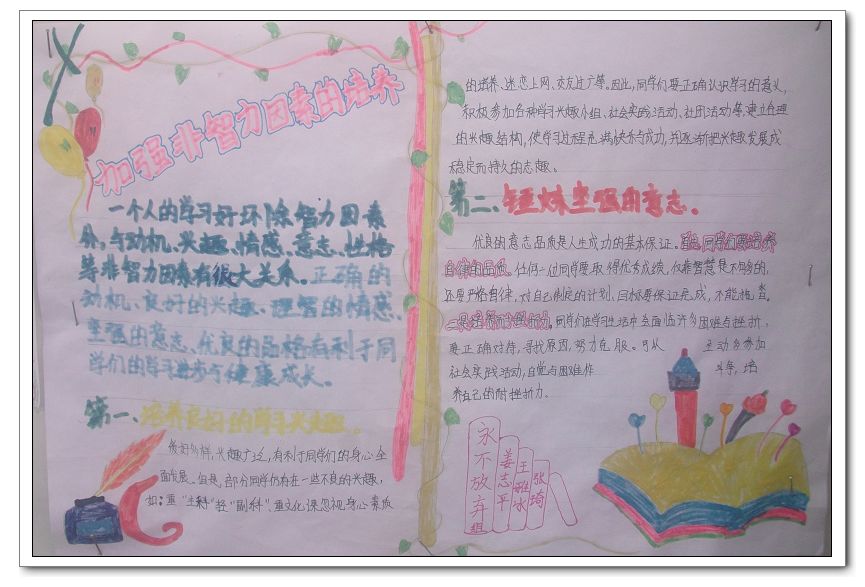 加强非智力因素的培养
一个人的学习好坏除智力因素
外，与动机、兴趣、情感、意志、性格
等非智力因素有很大关系。正确的
动机、良好的兴趣、理智的情感、
坚强的意志、优良的品格有利于同
学们的学习进步与健康成长。
第一、培养良好的学习兴趣。
爱好多样，兴趣广泛，有利于同学们的身心全
面发展。但是，部分同学仍存在一些不良的兴趣，
如：重“主科”轻“副科”、重文化课忽视身心素质
的培养、迷恋上网、交友过广等。因此，同学们要正确认识学习的意义，
积极参加各种学习兴趣小组、社会实践活动、社团活动等，建立合理
的兴趣结构，使学习过程充满快乐与成功，并逐渐把兴趣发展成
稳定而持久的志趣。
第二、锤炼坚强的意志。
优良的意志品质是人生成功的基本保证。同学们要培养
自律的品质。任何一位同学要取得优秀成绩，仅靠智慧是不够的，
还要严格自律，对自己制定的计划、目标要保证完成，不能拖沓。
二是培养耐挫折力。同学们在学习生活中会面临许多困难与挫折，
要正确对待，寻找原因，努力克服。可以 主动多参加
社会实践活动，自觉与困难作 斗争，培
养自己的耐挫折力。
永不放弃组
姜志平
王雅冰
张琦